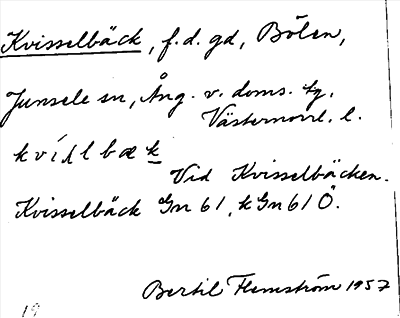 Kvisselbäck, f.d. gd, Bölen,
Junsele sn, Ång. v. doms. tg,
Västernorrl. l.
Vid Kvisselbäcken.
Kvisselbäck Gn 61, kGn 61 Ö.
Bertil Flemström 1957
19